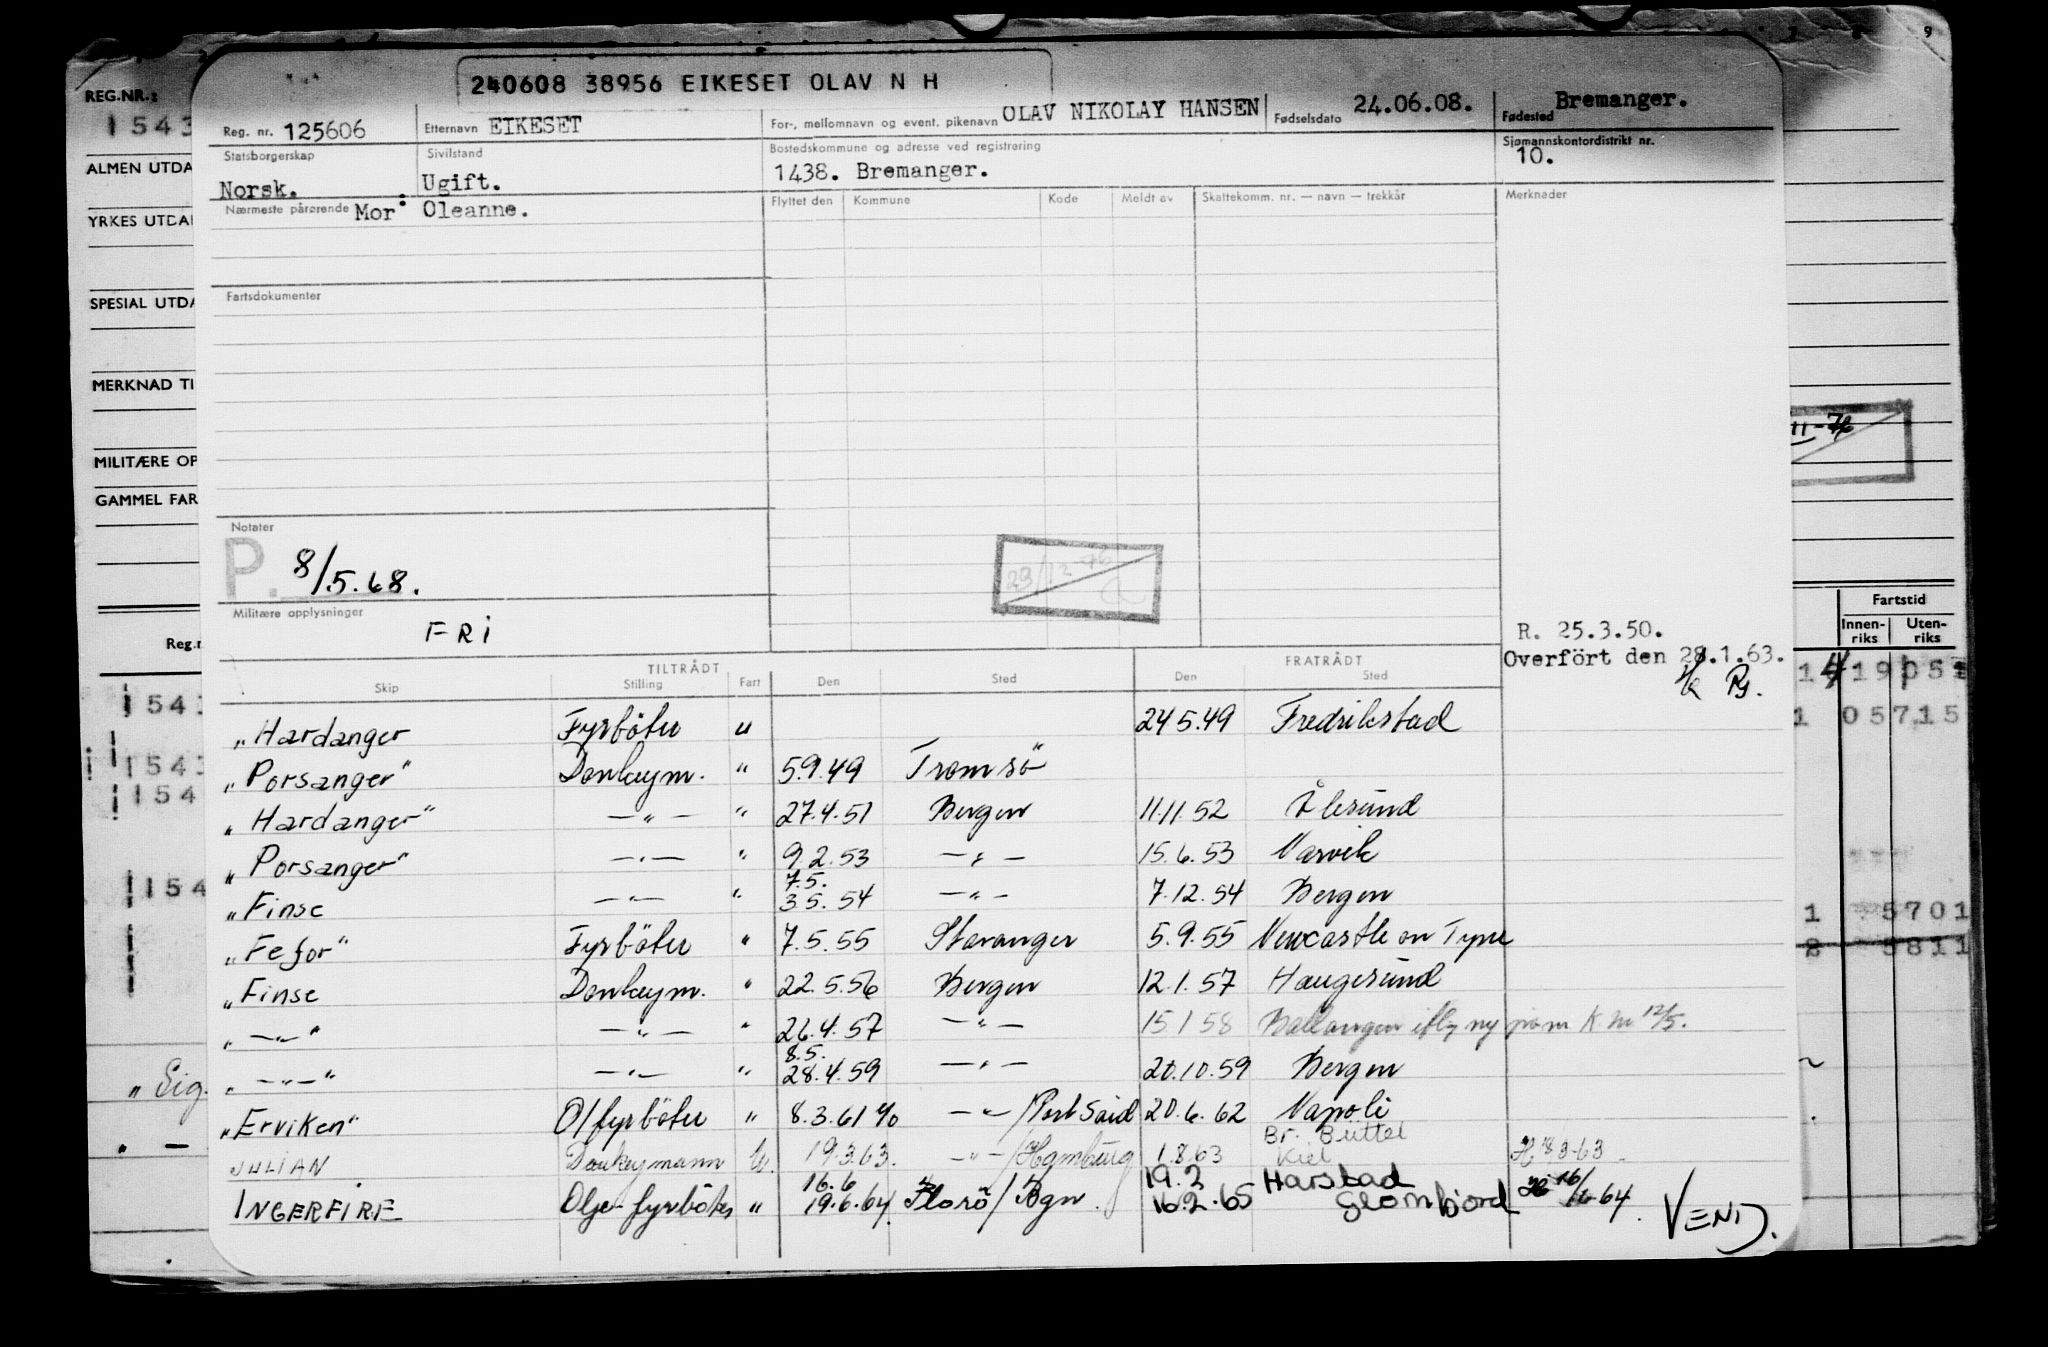 9
REG.NR.:
240608 38956 EIKESET OLAV N H
1543
Reg. nr. 125606 Etternavn EIKESET For-, mellomnavn og event. pikenavn OLAV NIKOLAY HANSEN Fødselsdato 24.06.08. Fødested Bremanger.
ALMEN UTDA
Statsborgerskap Sivilstand Bostedskommune og adresse ved registrering Sjømannskontordistrikt nr.
Norsk. Ugift. 1438. Bremanger. 10.
YRKES UTDAN
Nærmeste pårørende Mor: Oleanne. Flyttet den Kommune Kode Meldt av Skattekomm. nr. — navn — trekkår Merknader
SPESIAL UTDA
Fartsdokumenter
MERKNAD TI
11-76
MILITÆRE OP
GAMMEL FAR
Notater
P. 8/5.68.
29/12-76
Militære opplysninger
FRI
Fartstid
Innen-riks Uten-riks
R. 25.3.50.
Overført den 28.1.63.
Reg.n
TILTRÅDT FRATRÅDT
Skip Stilling Fart Den Sted Den Sted
"Hardanger Fyrböter u 24.5.49 Fredrikstad
"Porsanger" Donkeym. " 5.9.49 Tromsö
"Hardanger" —"— " 27.4.51 Bergen 11.11.52 Ålesund
"Porsanger" —"— " 9.2.53 —"— 15.6.53 Narvik
7.5.
"Finse —"— " 3.5.54 —"— 7.12.54 Bergen
"Fefor" Fyrböter " 7.5.55 Stavanger 5.9.55 Newcastle on Tyne
"Finse Donkeym. " 22.5.56 Bergen 12.1.57 Haugesund
" —"— " —"— " 26.4.57 —"— 15.1.58 Ballangen
8.5.
" —"— " —"— " 28.4.59 —"— 20.10.59 Bergen
"Erviken" O/fyrböter " 8.3.61 —"— /Port Said 20.6.62 Napoli
Br. Büttel
JULIAN Donkeymann u. 19.3.63. —"— /Hamburg 1.8.63 Kiel
16.6 19.2 Harstad
INGERFIRE Olje-fyrböter " 19.6.64 Florö/Bgn. 16.2.65 Glomfjord
VEND.
"Sig.
1543
154
154
05715
5701
5811